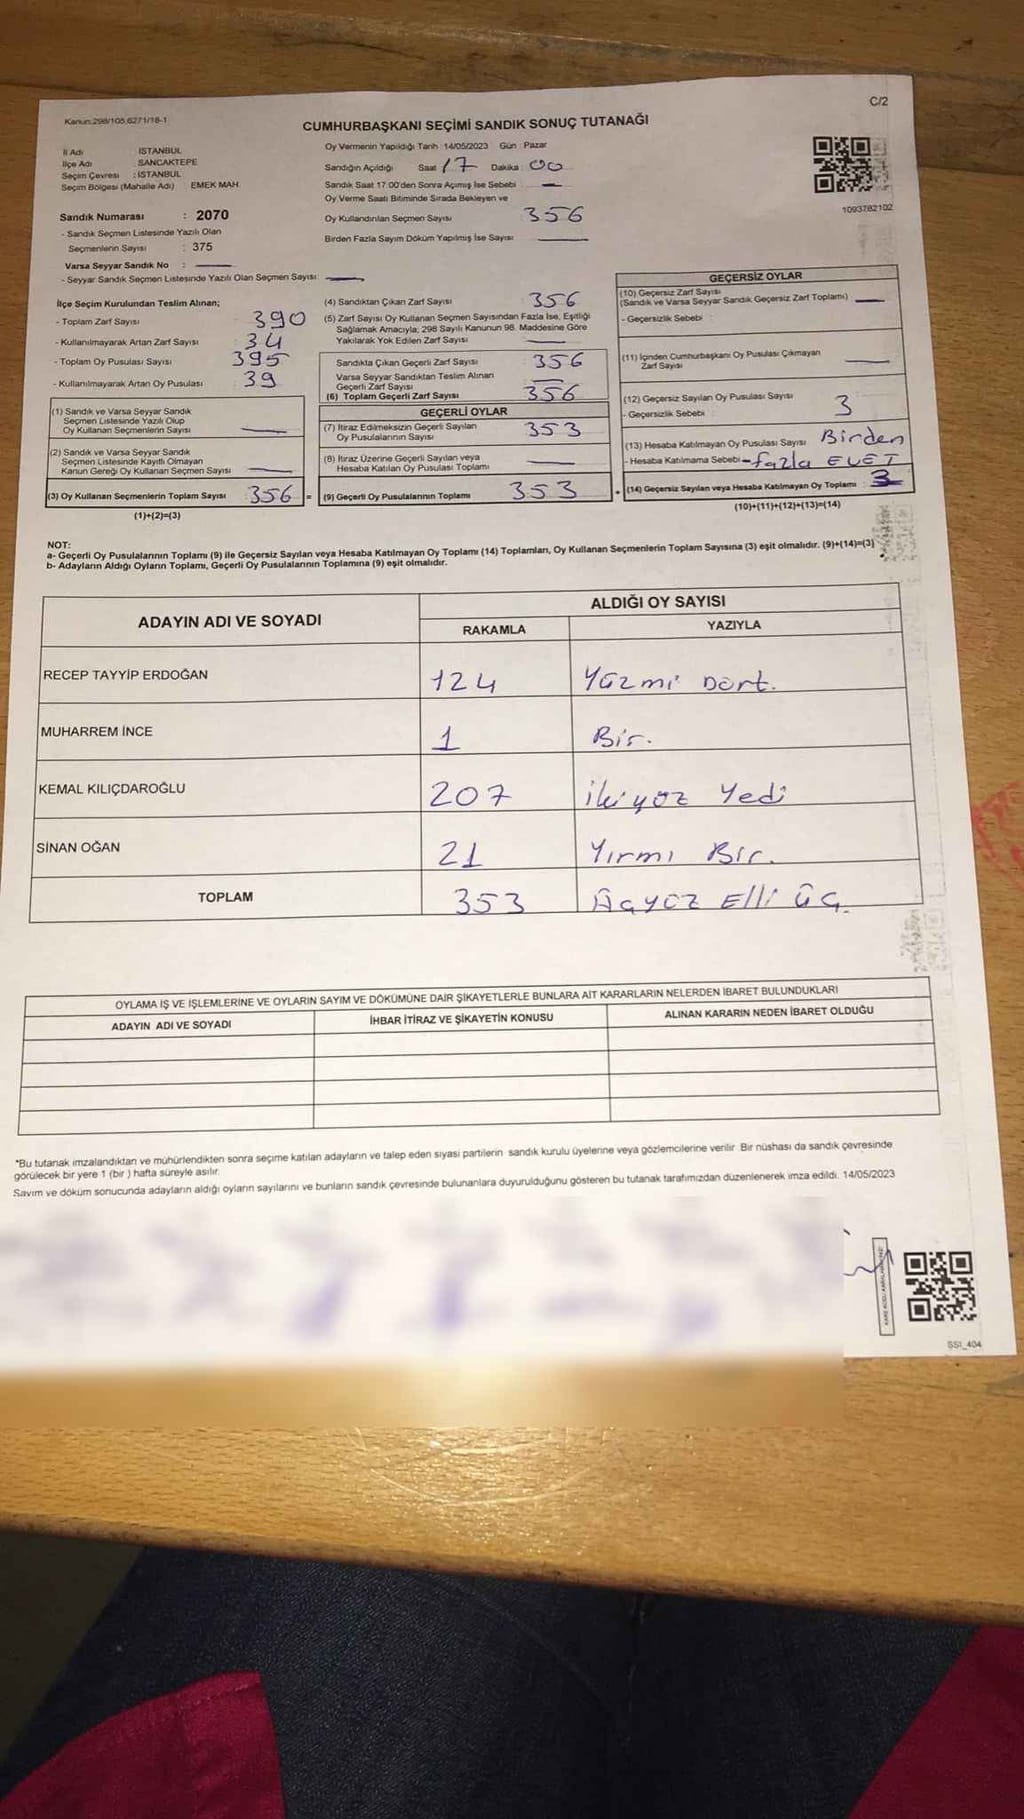 Kanun:298/105,6271/18-1
C/2
CUMHURBAŞKANI SEÇİMİ SANDIK SONUÇ TUTANAĞI
İl Adı : İSTANBUL
İlçe Adı : SANCAKTEPE
Seçim Çevresi : İSTANBUL
Seçim Bölgesi (Mahalle Adı) EMEK MAH.
Sandık Numarası : 2070
- Sandık Seçmen Listesinde Yazılı Olan
Seçmenlerin Sayısı : 375
Varsa Seyyar Sandık No :
- Seyyar Sandık Seçmen Listesinde Yazılı Olan Seçmen Sayısı:
Oy Vermenin Yapıldığı Tarih: 14/05/2023 Gün : Pazar
Sandığın Açıldığı Saat 17 Dakika : 00
Sandık Saat 17:00'den Sonra Açımış İse Sebebi :
Oy Verme Saati Bitiminde Sırada Bekleyen ve
Oy Kullandırılan Seçmen Sayısı 356
Birden Fazla Sayım Döküm Yapılmış İse Sayısı
1093782102
İlçe Seçim Kurulundan Teslim Alınan;
- Toplam Zarf Sayısı 390
- Kullanılmayarak Artan Zarf Sayısı 34
- Toplam Oy Pusulası Sayısı 395
- Kullanılmayarak Artan Oy Pusulası 39
(1) Sandık ve Varsa Seyyar Sandık
Seçmen Listesinde Yazılı Olup
Oy Kullanan Seçmenlerin Sayısı
(2) Sandık ve Varsa Seyyar Sandık
Seçmen Listesinde Kayıtlı Olmayan
Kanun Gereği Oy Kullanan Seçmen Sayısı
(3) Oy Kullanan Seçmenlerin Toplam Sayısı 356 =
(1)+(2)=(3)
(4) Sandıktan Çıkan Zarf Sayısı 356
(5) Zarf Sayısı Oy Kullanan Seçmen Sayısından Fazla İse, Eşitliği
Sağlamak Amacıyla, 298 Sayılı Kanunun 98. Maddesine Göre
Yakılarak Yok Edilen Zarf Sayısı
Sandıkta Çıkan Geçerli Zarf Sayısı 356
Varsa Seyyar Sandıktan Teslim Alınan
Geçerli Zarf Sayısı
(6) Toplam Geçerli Zarf Sayısı 356
GEÇERLİ OYLAR
(7) İtiraz Edilmeksizin Geçerli Sayılan
Oy Pusulalarının Sayısı 353
(8) İtiraz Üzerine Geçerli Sayılan veya
Hesaba Katılan Oy Pusulası Toplamı
(9) Geçerli Oy Pusulalarının Toplamı 353 +
GEÇERSİZ OYLAR
(10) Geçersiz Zarf Sayısı
(Sandık ve Varsa Seyyar Sandık Geçersiz Zarf Toplamı)
- Geçersizlik Sebebi :
(11) İçinden Cumhurbaşkanı Oy Pusulası Çıkmayan
Zarf Sayısı
(12) Geçersiz Sayılan Oy Pusulası Sayısı 3
- Geçersizlik Sebebi
(13) Hesaba Katılmayan Oy Pusulası Sayısı Birden
- Hesaba Katılmama Sebebi - fazla EVET
(14) Geçersiz Sayılan veya Hesaba Katılmayan Oy Toplamı : 3
(10)+(11)+(12)+(13)=(14)
NOT:
a- Geçerli Oy Pusulalarının Toplamı (9) ile Geçersiz Sayılan veya Hesaba Katılmayan Oy Toplamı (14) Toplamları, Oy Kullanan Seçmenlerin Toplam Sayısına (3) eşit olmalıdır. (9)+(14)=(3)
b- Adayların Aldığı Oyların Toplamı, Geçerli Oy Pusulalarının Toplamına (9) eşit olmalıdır.
ADAYIN ADI VE SOYADI
ALDIĞI OY SAYISI
RAKAMLA YAZIYLA
RECEP TAYYİP ERDOĞAN 124 Yüzmi Dört.
MUHARREM İNCE 1 Bir.
KEMAL KILIÇDAROĞLU 207 ikiyüz Yedi
SİNAN OĞAN 21 Yırmı Bir.
TOPLAM 353 Üçyüz Elli üç.
OYLAMA İŞ VE İŞLEMLERİNE VE OYLARIN SAYIM VE DÖKÜMÜNE DAİR ŞİKAYETLERLE BUNLARA AİT KARARLARIN NELERDEN İBARET BULUNDUKLARI
ADAYIN ADI VE SOYADI İHBAR İTİRAZ VE ŞİKAYETİN KONUSU ALINAN KARARIN NEDEN İBARET OLDUĞU
*Bu tutanak imzalandıktan ve mühürlendikten sonra seçime katılan adayların ve talep eden siyasi partilerin sandık kurulu üyelerine veya gözlemcilerine verilir. Bir nüshası da sandık çevresinde
görülecek bir yere 1 (bir ) hafta süreyle asılır.
Sayım ve döküm sonucunda adayların aldığı oyların sayılarını ve bunların sandık çevresinde bulunanlara duyurulduğunu gösteren bu tutanak tarafımızdan düzenlenerek imza edildi. 14/05/2023
SSI_404